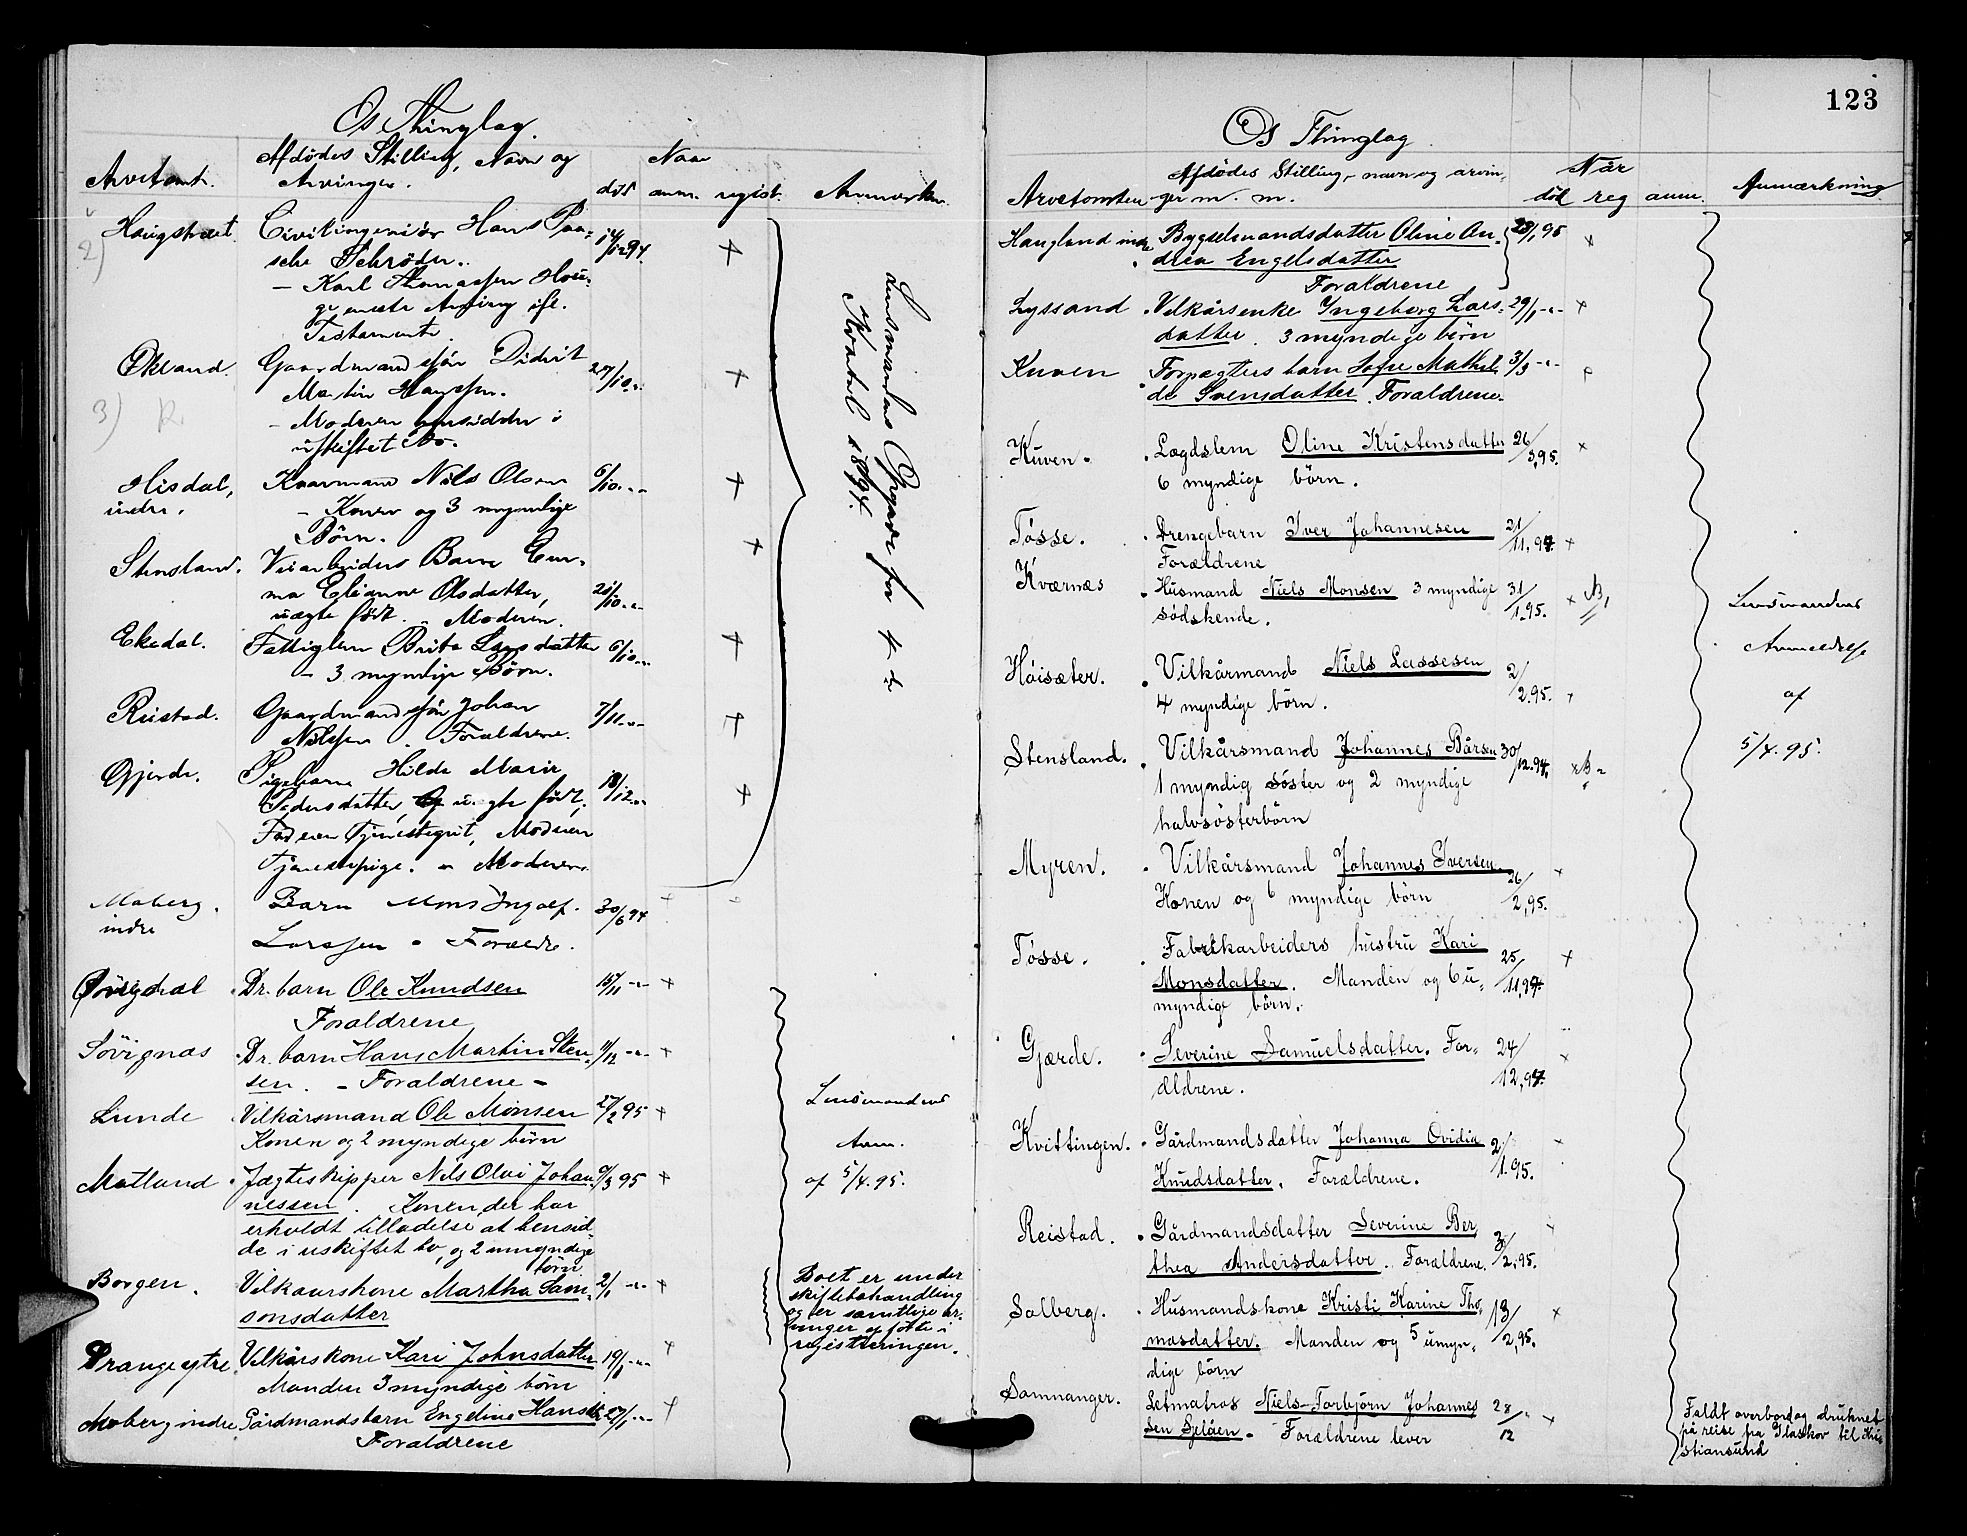 Os Thinglag.
Arvetomt.
Afdødes Stilling, Navn og
Arvinger.
Naar
død
anm. regist.
Anmærkn.
2)
Civilingeniør Hans Paa-
sche Schrøder.
14/12 94
+
- Karl Thomassen Hau-
ge eneste Arving ifl.
Testamente.
Økland.
Gaardmandssøn Didrik
27/10 "
+
Martin Hanssen.
3) R.
- Moderen hensidder i
uskiftet Bo.
Hisdal,
indre.
Kaarmand Nils Olsen
6/10 - " -
+
- Konen og 3 myndige
Børn.
+
Stensland.
Veiarbeiders Barn Em-
ma Elianne Olsdatter,
21/10 - " -
uægte født. - Moderen.
Ekedal.
Fattiglem Brita Larsdatter
6/10 - " -
+
- 3 myndige Børn.
Riistad.
Gaardmandssøn Johan
7/11 - " -
+
Nilssen. Forældrene.
Gjerde.
Pigebarn Hilda Marie
18/12 - " -
+
Pedersdatter, uægte født.
Faderen Tjenestegut, Moderen
Tjenestepige. - Moderen.
Lensmandens Opgave for 4de
Kvartal 1894.
Moberg.
indre
Barn Mons Ingolf
30/6 94
+
Larssen - Forældre.
Søvigdal
Dr. barn Ole Knudsen
15/11 - " -
+
Forældrene
Søvignæs
Dr. barn Hans Martin Sten-
11/12 - " -
+
sen. - Forældrene -
Lunde
Vilkårsmand Ole Monsen
27/2 95
+
Konen og 2 myndige børn
Lensmandens
Anm.
af 5/4.95.
Matland
Jægteskipper Nils Olai Johan-
9/3 95
+
nessen. Konen, der har
erholdt tilladelse at hensid-
de i uskiftet bo, og 2 umyndige
børn
Borgen.
Vilkaarskone Martha Sam-
2/1 - " -
+
sonsdatter
Boet er under
skiftebehandling
og er samtlige ar-
vinger opførte i
registreringen.
Drange ytre.
Vilkårskone Kari Johnsdatter
19/1 - " -
+
Manden 3 myndige børn
Moberg indre
Gårdmandsbarn Engeline Hansdtr
27/1 - " -
+
Forældrene
123
Os Thinglag.
Arvetomten
Afdødes Stilling, navn og arvin-
ger m. m.
Når
død reg anm.
Anmærkning.
Haugland indre
Bygselmandsdatter Oline An-
28/1 95
+
drea Engelsdatter
Forældrene
Lyssand
Vilkårsenke Ingeborg Lars-
29/1 - " -
+
datter. 3 myndige børn
Kuven
Forpagters barn Sofie Mathil-
3/3 - " -
+
de Svensdatter. Forældrene.
Kuven.
Lægdslem Oline Kristensdatter
26/3,95.
+
6 myndige børn.
Tøsse.
Drengebarn Iver Johannesen
21/11,94.
+
Forældrene
Kværnæs
Husmand Niels Monsen 3 myndige
31/1.95.
+
sødskende.
Lensmandens
Anmeldelse
af
5/4.95.
Høisæter.
Vilkårmand Niels Lassesen
2/2.95.
+
4 myndige børn.
Stensland.
Vilkårsmand Johannes Bårsen
30/12.94.
1 myndig søster og 2 myndige
halvsøsterbørn
Myren.
Vilkårsmand Johannes Iversen
26/2,95.
+
Konen og 6 myndige børn
Tøsse.
Fabrikarbeiders hustru Kari
25/11,94.
+
Monsdatter. Manden og 6 u-
myndige børn.
Gjærde.
Severine Samuelsdatter. For-
24/12,94.
+
ældrene.
Kvittingen.
Gårdmandsdatter Johanna Ovidia
2/1.95.
+
Knudsdatter. Forældrene.
Reistad.
Gårdmandsdatter Severine Ber-
3/2,95.
+
thea Andersdatter. Forældrene.
Solberg.
Husmandskone Kristi Karine Tho-
13/2,95.
+
masdatter. Manden og 5 umyn-
dige børn
Samnanger.
Letmatros Niels Torbjørn Johannes
28/12 "
+
sen Gjelåen. Forældrene lever
Faldt overbord og druknet
på reise fra Flaskov til Kri-
stiansund